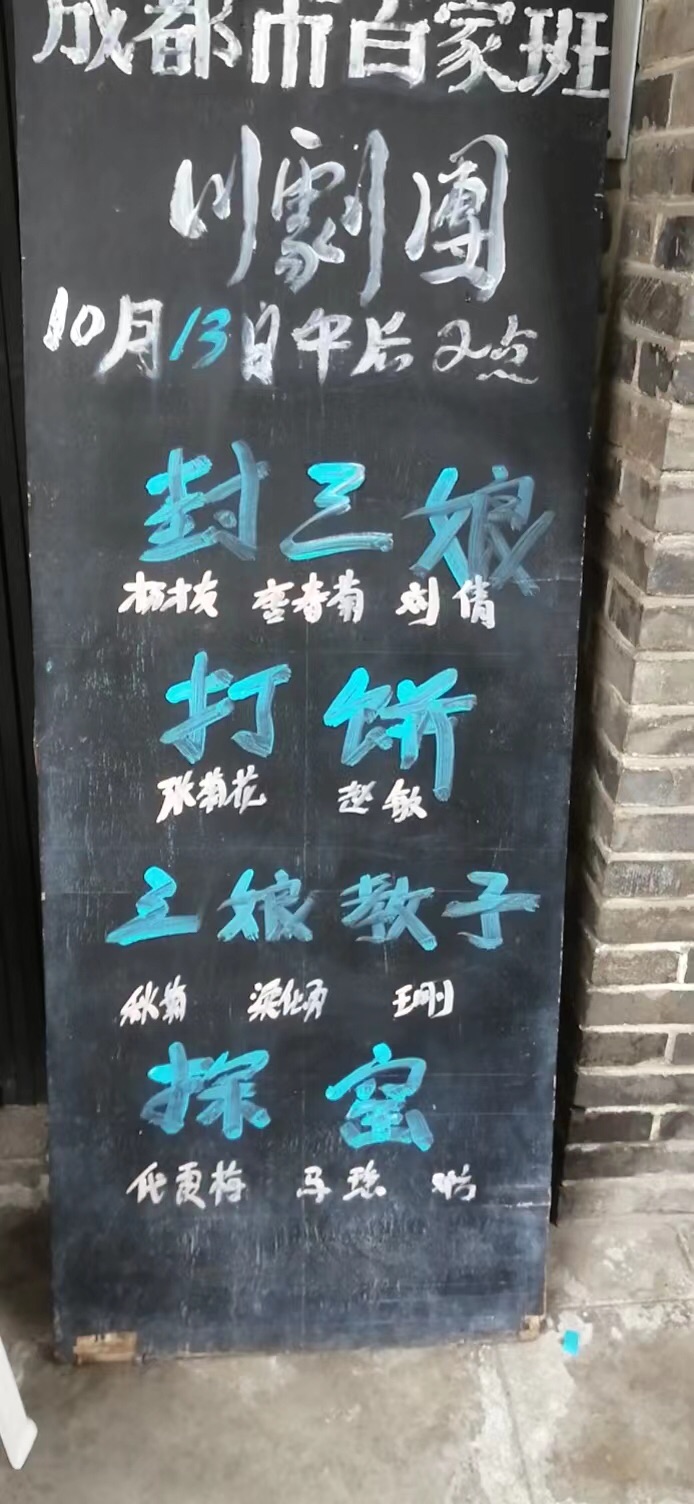 成都市百家班
川劇團
10月13日午后2点
封三娘
杨才友 春菊 刘倩
打饼
张菊花 赵敏
三娘教子
秋菊 王刚
探窑
代夏梅 马